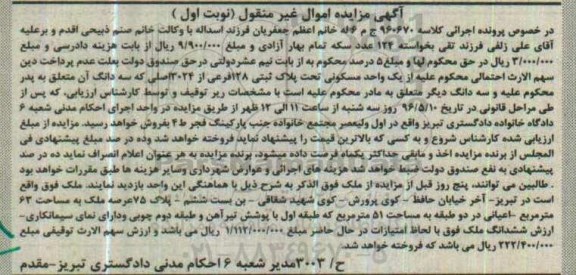 آگهی مزایده اموال غیر منقول (نوبت اول )
در خصوص پرونده اجرائی کلاسه ۹۶۰۶۷۰ ج م ۶ له خانم اعظم جعفریان فرزند اسداله با وکالت خانم صنم ذبیحی اقدم و برعلیه
آقای علی زلفی فرزند تقی بخواسته ۱۲۴ عدد سکه تمام بهار آزادی و مبلغ ۹/۹۰۰/۰۰۰ ریال از بابت هزینه دادرسی و مبلغ
۳/۰۰۰/۰۰۰ ریال در حق محکوم لها و مبلغ ۵ درصد محکوم به از بابت نیم عشردولتی درحق صندوق دولت بعلت عدم پرداخت دین
سهم الارث احتمالی محکوم علیه از یک واحد مسکونی تحت پلاک ثبتی ۱۲۸فرعی از ۳۰۲۴اصلی که سه دانگ آن متعلق به پدر
محکوم علیه و سه دانگ دیگر متعلق به مادر محکوم علیه است با مشخصات زیر توقیف و توسط کارشناس ارزیابی، که پس از
طی مراحل قانونی در تاریخ ۹۶/۵/۱۰ روز سه شنبه از ساعت ۱۱ الی ۱۲ ظهر از طریق مزایده در واحد اجرای احکام مدنی شعبه ۶
دادگاه خانواده دادگستری تبریز واقع در اول ولیعصر مجتمع خانواده جنب پارکینگ فجر ط۴ بفروش خواهد رسید. مزایده از مبلغ
ارزیابی شده کارشناس شروع و به کسی که بالاترین قیمت را پیشنهاد نماید فروخته خواهد شد وده در صد مبلغ پیشنهادی فی
المجلس از برنده مزایده اخذ و مابقی حداکثر یکماه فرصت داده میشود. برنده مزایده به هر عنوان اعلام انصراف نماید ده در صد
پیشنهادی به نفع صندوق دولت ضبط خواهد شد هزینه های اجرائی و عوارض شهرداری وسایر هزینه ها طبق مقررات خواهد بود
. طالبین می توانند، پنج روز قبل از مزایده از ملک فوق الذکر به شرح ذیل با هماهنگی این واحد بازدید نمایند. ملک فوق واقع
است در تبریز- آخر خیابان حافظ - کوی پرورش - کوی شهید شفاقی - بن بست ششم - پلاک ۷۵عرصه ملک به مساحت ۶۳
مترمربع -اعیانی در دو طبقه به مساحت ۵۱ مترمربع که طبقه اول با پوشش تیرآهن و طبقه دوم چوبی ودارای نمای سیمانکاری-
ارزش ششدانگ ملک فوق با لحاظ امتیازات در حال حاضر مبلغ ۱/۱۱۲/۰۰۰/۰۰۰ ریال می باشد و ارزش سهم الارث توقیفی مبلغ
۲۲۲/۴۰۰/۰۰۰ ریال می باشد که فروخته خواهد شد.
ح/ ۳۰۰۳مدیر شعبه ۶ احکام مدنی دادگستری تبریز-مقدم